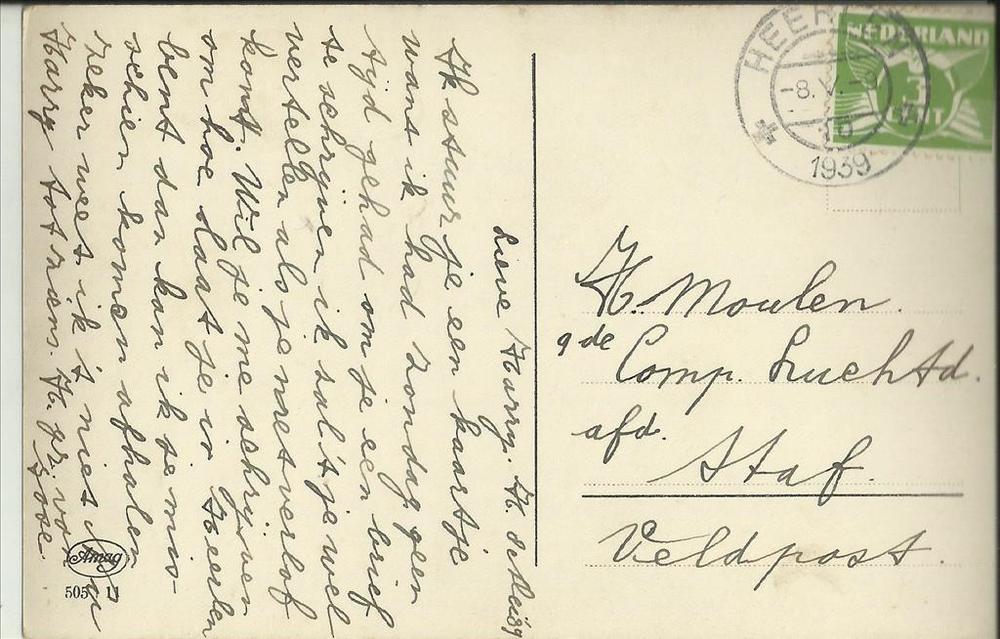 Lieve Harry. H.
Ik stuur je een kaartje
want ik had Zondag geen
tijd gehad om je een brief
te schrijven ik zal 't je wel
vertellen als je met verlof
komt. Wil je me schrijven
om hoe laat je in Heerlen
bent dan kan ik je mis-
schien komen afhalen
zeker weet ik 't niet
Harry tot ziens. H. gr. van
HEERLEN
-8.V.
1939
NEDERLAND
3
CENT
H. Moulen.
9de Comp. Luchtd.
afd.
Staf.
Veldpost.
Amag
505 11